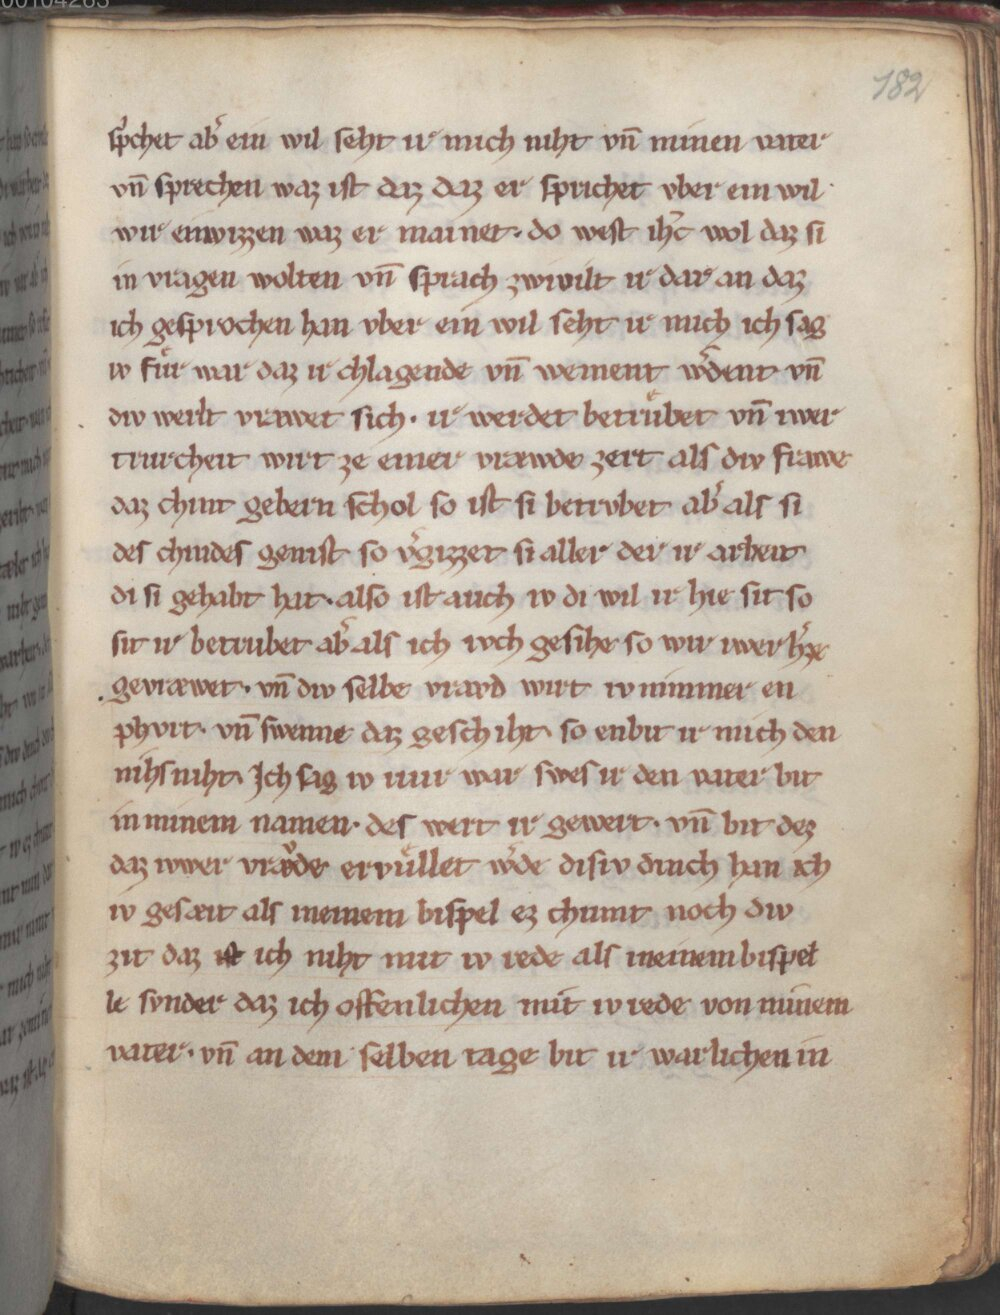 182
sp̓chet ab̓ ein wil seht ir mich niht vn̄ minen vater
vn̄ sprechen waz ist daz daz er sprichet vber ein wil
wir einwizzen waz er mainet· do west ih̓c wol daz si
in vragen wolten vn̄ sprach zwivilt ir dar an daz
ich gesprochen han vber ein wil seht ir mich ich sag
iv fuͤr war daz ir chlagende vn̄ weinent w̓dent vn̄
div werlt vrawet sich· ir werdet betruͤbet vn̄ iwer
trurcheit wirt ze einer vræwde zert als div frawe
daz chint gebern schol so ist si betrvbet ab̓ als si
des chindes genist so v̓gizzet si aller der ir arbeit
di si gehabt hat· also ist auch iv di wil ir hie sit so
sit ir betrubet ab̓ als ich ivch gesihe so wir iwer h̓ze
gevræwet· vn̄ div selbe vravd wirt iv nimmer en
phvrt· vn̄ swenne daz geschiht so enbit ir mich den
nihs niht Ich sag iv uur war swes ir den vater bit
in minem namen· des wert ir gewert· vn̄ bit dez
daz iwer vræ̓de ervuͤllet w̓de disiv dinch han ich
iv gesæit als ineinem bispel ez chumt noch div
zit daz ist ich niht mit iv rede als ineinem bispel
le svnder daz ich offenlichen mit iv rede von minem
vater· vn̄ an dem selben tage bit ir warlichen in